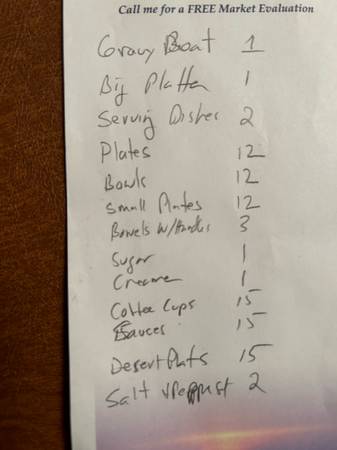 Call me for a FREE Market Evaluation
Gravy Boat 1
Big Platter 1
Serving Dishes 2
Plates 12
Bowls 12
Small Plates 12
Bowels W/Handles 3
Sugar 1
Creame 1
Coffee Cups 15
Sauces 15
Desert Plats 15
Salt 2